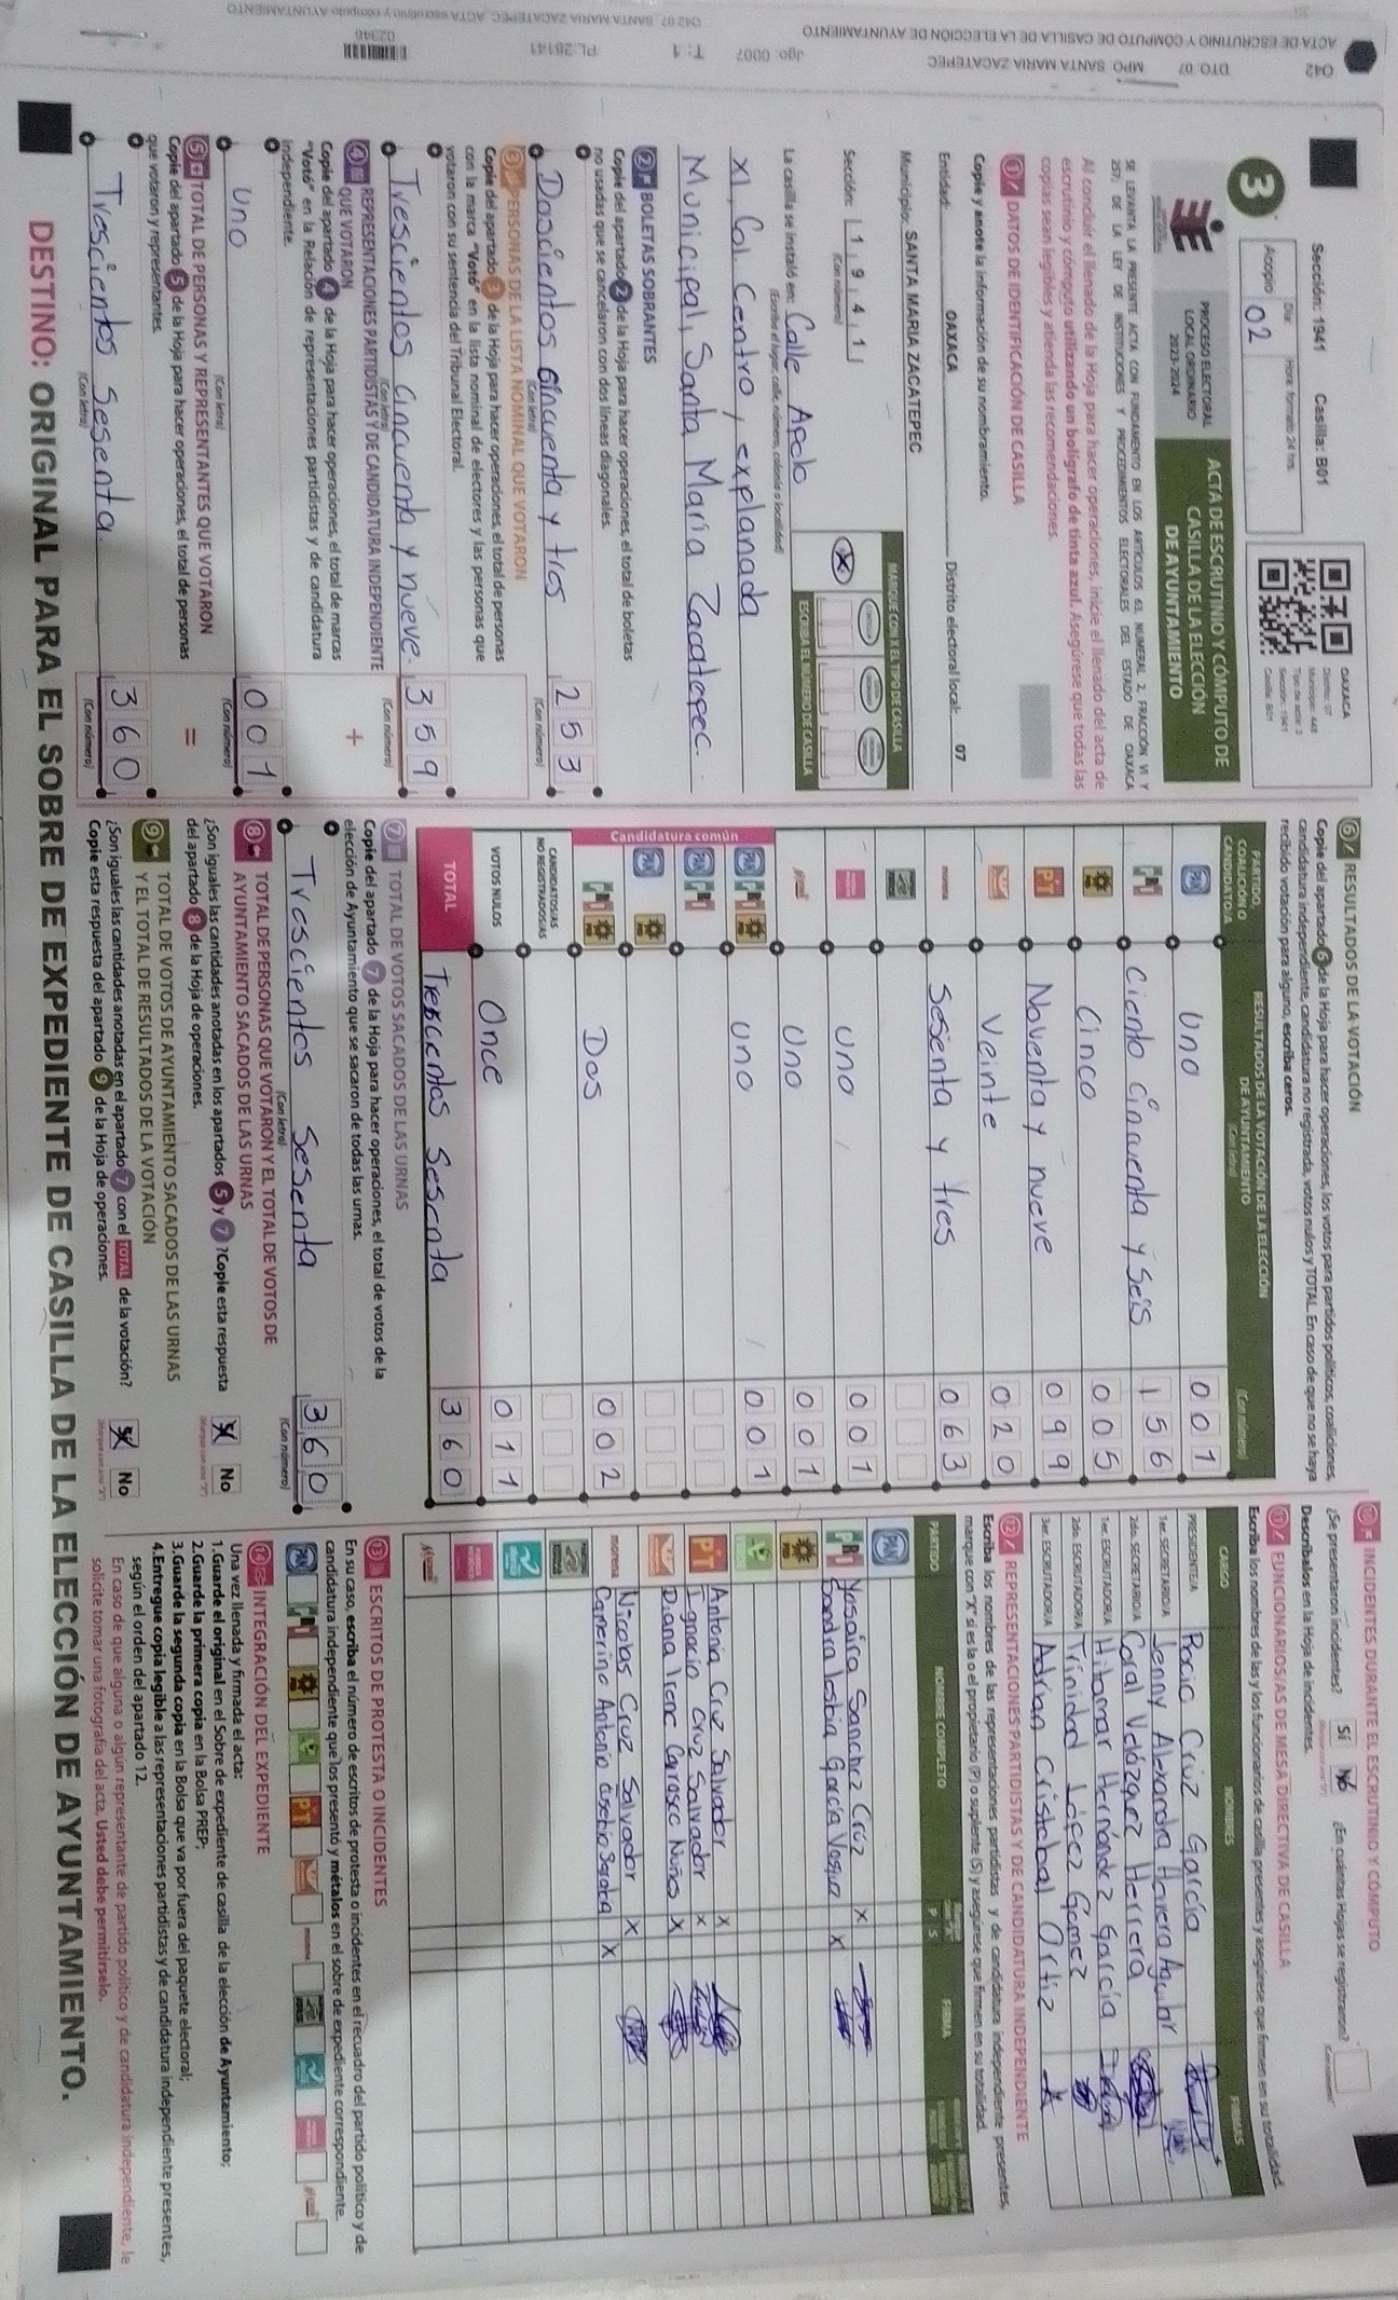 042 DTO: 07 MPO SANTA MARIA ZACATEPEC Jgo: 0007 T: 1 PL:26141
ACTA DE ESCRUTINIO Y CÓMPUTO DE CASILLA DE LA ELECCIÓN DE AYUNTAMIENTO
Sección: 1941 Casilla: B01
3
Acopio
02
Día:
Hora: formato 24 hrs.
OAXACA
PROCESO ELECTORAL LOCAL ORDINARIO 2023-2024
ACTA DE ESCRUTINIO Y CÓMPUTO DE
CASILLA DE LA ELECCIÓN
DE AYUNTAMIENTO
SE LEVANTA LA PRESENTE ACTA CON FUNDAMENTO EN LOS ARTÍCULOS 63, NUMERAL 2, FRACCIÓN VI Y
257; DE LA LEY DE INSTITUCIONES Y PROCEDIMIENTOS ELECTORALES DEL ESTADO DE OAXACA
Al concluir el llenado de la Hoja para hacer operaciones, inicie el llenado del acta de
escrutinio y cómputo utilizando un bolígrafo de tinta azul. Asegúrese que todas las
copias sean legibles y atienda las recomendaciones.
1 DATOS DE IDENTIFICACIÓN DE CASILLA
Copie y anote la información de su nombramiento.
Entidad: OAXACA Distrito electoral local: 07
Municipio: SANTA MARIA ZACATEPEC
MARQUE CON X EL TIPO DE CASILLA
Sección: 1 9 4 1
(Con número)
X
ESCRIBA EL NÚMERO DE CASILLA
La casilla se instaló en: Calle Apolo
(Escriba el lugar, calle, número, colonia o localidad)
X1, Col. Centro, explanada
Municipal, Santa María Zacatepec.
2 BOLETAS SOBRANTES
Copie del apartado 2 de la Hoja para hacer operaciones, el total de boletas
no usadas que se cancelaron con dos líneas diagonales.
Doscientos cincuenta y tres 253
(Con letra) (Con número)
3 PERSONAS DE LA LISTA NOMINAL QUE VOTARON
Copie del apartado 3 de la Hoja para hacer operaciones, el total de personas
con la marca "Votó" en la lista nominal de electores y las personas que
votaron con su sentencia del Tribunal Electoral.
Trescientos cincuenta y nueve. 359
(Con letra) (Con número)
4 REPRESENTACIONES PARTIDISTAS Y DE CANDIDATURA INDEPENDIENTE
QUE VOTARON
+
Copie del apartado 4 de la Hoja para hacer operaciones, el total de marcas
"Votó" en la Relación de representaciones partidistas y de candidatura
independiente.
Uno 001
(Con letra) (Con número)
5 TOTAL DE PERSONAS Y REPRESENTANTES QUE VOTARON
=
Copie del apartado 5 de la Hoja para hacer operaciones, el total de personas
que votaron y representantes.
Trescientos sesenta 360
(Con letra) (Con número)
6 RESULTADOS DE LA VOTACIÓN
Copie del apartado 6 de la Hoja para hacer operaciones, los votos para partidos políticos, coaliciones,
candidatura independiente, candidatura no registrada, votos nulos y TOTAL. En caso de que no se haya
recibido votación para alguno, escriba ceros.
PARTIDO, COALICIÓN O CANDIDATO/A
RESULTADOS DE LA VOTACIÓN DE LA ELECCIÓN
DE AYUNTAMIENTO
(Con letra) (Con número)
PAN Uno 001
PRI Ciento cincuenta y seis 156
PRD Cinco 005
PT Noventa y nueve 099
Veinte 020
morena Sesenta y tres 063
Uno 001
Uno 001
Candidatura común
PAN PRI PRD Uno 001
PAN PRI
PAN PRD
PRI PRD Dos 002
CANDIDATOS/AS NO REGISTRADOS/AS
VOTOS NULOS Once 011
TOTAL Trescientos Sesenta 360
7 TOTAL DE VOTOS SACADOS DE LAS URNAS
Copie del apartado 7 de la Hoja para hacer operaciones, el total de votos de la
elección de Ayuntamiento que se sacaron de todas las urnas.
Trescientos Sesenta 360
(Con letra) (Con número)
8 TOTAL DE PERSONAS QUE VOTARON Y EL TOTAL DE VOTOS DE
AYUNTAMIENTO SACADOS DE LAS URNAS
¿Son iguales las cantidades anotadas en los apartados 5 y 7? Copie esta respuesta
del apartado 8 de la Hoja de operaciones.
Sí No
9 TOTAL DE VOTOS DE AYUNTAMIENTO SACADOS DE LAS URNAS
Y EL TOTAL DE RESULTADOS DE LA VOTACIÓN
¿Son iguales las cantidades anotadas en el apartado 7 con el TOTAL de la votación?
Copie esta respuesta del apartado 9 de la Hoja de operaciones.
Sí No
10 INCIDENTES DURANTE EL ESCRUTINIO Y CÓMPUTO
¿Se presentaron incidentes? Sí No ¿En cuántas Hojas se registraron?
Descríbalos en la Hoja de incidentes.
11 FUNCIONARIOS/AS DE MESA DIRECTIVA DE CASILLA
Escriba los nombres de las y los funcionarios de casilla presentes y asegúrese que firmen en su totalidad.
CARGO NOMBRES FIRMAS
PRESIDENTE/A Rocio Cruz García
1er. SECRETARIO/A Jenny Alexandra Havera Aguilar
2do. SECRETARIO/A Coral Velázquez Herrera
1er. ESCRUTADOR/A Hitamar Hernández García
2do. ESCRUTADOR/A Trinidad López Gomez
3er. ESCRUTADOR/A Adrían Cristobal Ortiz
12 REPRESENTACIONES PARTIDISTAS Y DE CANDIDATURA INDEPENDIENTE
Escriba los nombres de las representaciones partidistas y de candidatura independiente presentes,
marque con "X" si es la o el propietario (P) o suplente (S) y asegúrese que firmen en su totalidad.
PARTIDO NOMBRE COMPLETO P S FIRMA
PAN
PRI Yosaira Sanchez Cruz X
Sandra Lesbia García X
PRD
PT Antonia Cruz Salvador X
Ignacio Cruz Salvador X
Diana Irene Carasco Nuños X
morena Nicolas Cruz Salvador X
Camerino Antonio Eusebio X
13 ESCRITOS DE PROTESTA O INCIDENTES
En su caso, escriba el número de escritos de protesta o incidentes en el recuadro del partido político y de
candidatura independiente que los presentó y métalos en el sobre de expediente correspondiente.
PAN PRI PRD PT morena
14 INTEGRACIÓN DEL EXPEDIENTE
Una vez llenada y firmada el acta:
1.Guarde el original en el Sobre de expediente de casilla de la elección de Ayuntamiento;
2.Guarde la primera copia en la Bolsa PREP;
3.Guarde la segunda copia en la Bolsa que va por fuera del paquete electoral;
4.Entregue copia legible a las representaciones partidistas y de candidatura independiente presentes,
según el orden del apartado 12.
En caso de que alguna o algún representante de partido político y de candidatura independiente, le
solicite tomar una fotografía del acta, Usted debe permitírselo.
DESTINO: ORIGINAL PARA EL SOBRE DE EXPEDIENTE DE CASILLA DE LA ELECCIÓN DE AYUNTAMIENTO.